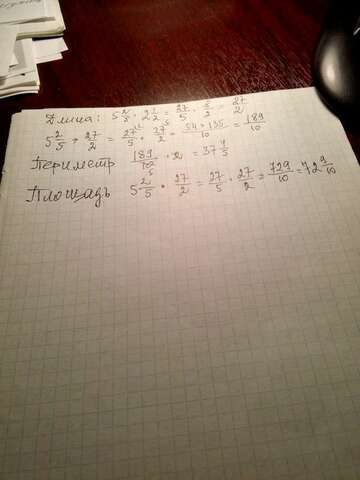 Длина: 5 2/5 · 2 1/2 = 27/5 · 5/2 = 27/2
5 2/5 + 27/2 = 27/5 + 27/2 = 54+135/10 = 189/10
Периметр 189/10 · 2 = 37 4/5
Площадь 5 2/5 · 27/2 = 27/5 · 27/2 = 729/10 = 72 9/10